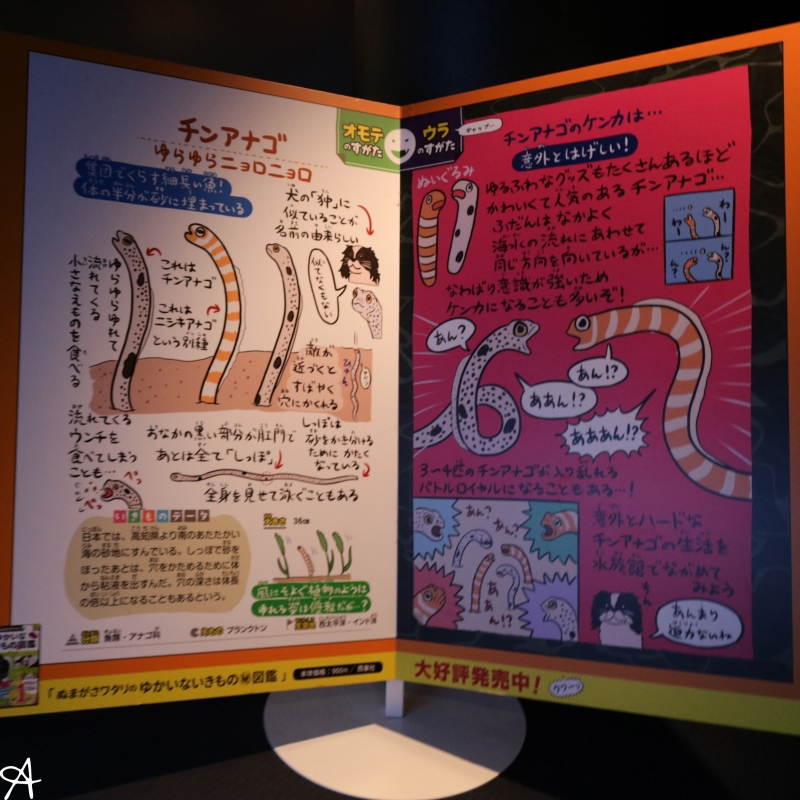 チンアナゴ
ゆらゆらニョロニョロ
集団でくらす細長い魚!
体の半分が砂に埋まっている
犬の「狆」に
似ていることが
名前の由来らしい
似てなくもない
これは
チンアナゴ
これは
ニシキアナゴ
という別種
ゆらゆらゆれて
流れてくる
小さなえものを食べる
敵が
近づくと
すばやく
穴にかくれる
ひゅん
流れてくる
ウンチを
食べてしまう
ことも…
ペっ
ペっ
おなかの黒い部分が肛門で
あとは全て「しっぽ」
しっぽは
砂をかき分ける
ために かたく
なっている
全身を見せて泳ぐこともある
いきものデータ
日本では、高知県より南のあたたかい
海の砂地にすんでいる。しっぽで砂を
ほったあとは、穴をかためるために体
から粘液を出すんだ。穴の深さは体長
の倍以上になることもあるという。
大きさ 36cm
風にそよぐ植物のように
ゆれる姿は優雅だが…?
魚類・アナゴ科
プランクトン
西太平洋・インド洋
「ぬまがさワタリのゆかいないきもの㊙図鑑」
本体価格:950円/西東社
オモテ
のすがた
ウラ
のすがた
ギャップ…
チンアナゴのケンカは…
意外とはげしい!
ぬいぐるみ
ゆるふわなグッズもたくさんあるほど
かわいくて人気のある チンアナゴ…
ふだんは なかよく
海水の流れにあわせて
同じ方向を向いているが…
わー
わー
ん?
ん?
なわばり意識が強いため
ケンカになることも多いぞ!
あん?
あん!?
ああん!?
あああん!?
3〜4匹のチンアナゴが入り乱れる
バトルロイヤルになることもある…!
あん?
あん?
あ
あ
ん!?
意外とハードな
チンアナゴの生活を
水族館でながめて
みよう
あんまり
動かないね
大好評発売中!
クワーッ